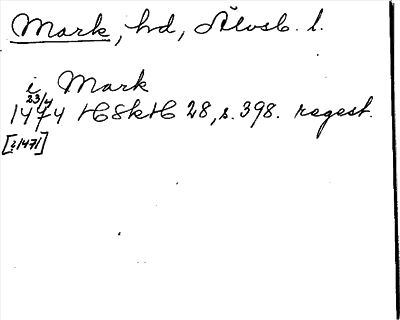 Mark, hd, Älvsb. l.
i Mark
23/4
1474 HSkH 28, s. 398. regest.
[i 1471]